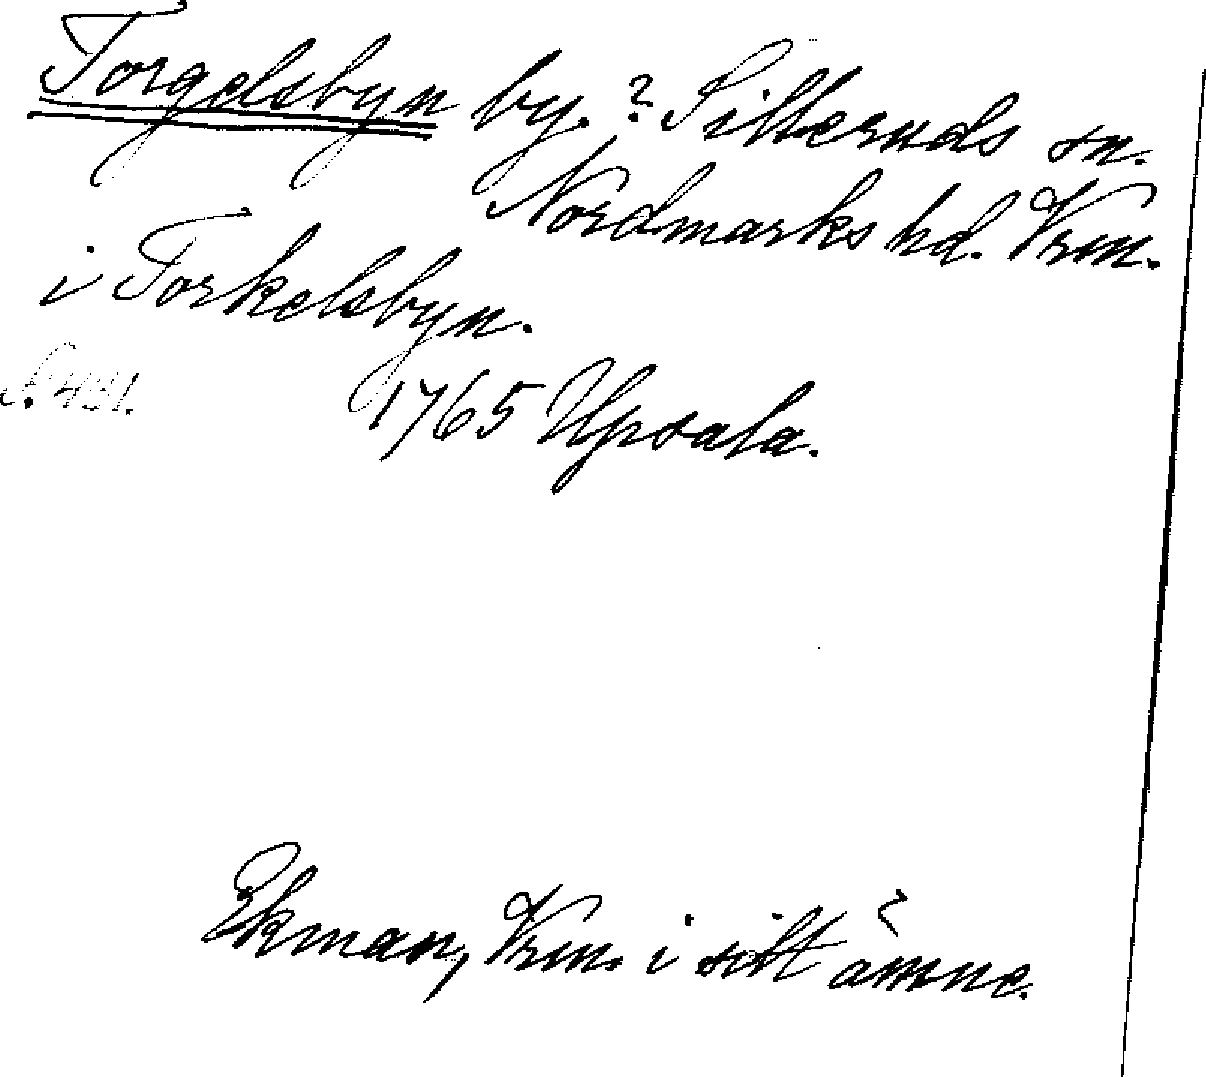 Torgelsbyn by. ? Silleruds sn.
Nordmarks hd. Vrm.
i Torkelsbyn.
S. 431.
1765 Upsala.
Ekman, Vrm. i sitt ämne.